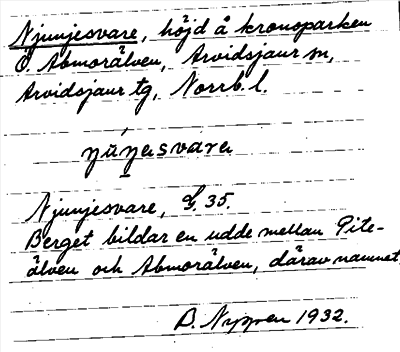 Njunjesvare, höjd å kronoparken
Ö. Abmorälven, Arvidsjaur sn,
Arvidsjaur tg, Norrb. l.
Njunjesvare, L. 35.
Berget bildar en udde mellan Pite-
älven och Abmorälven, därav namnet.
B. Nyppen 1932.